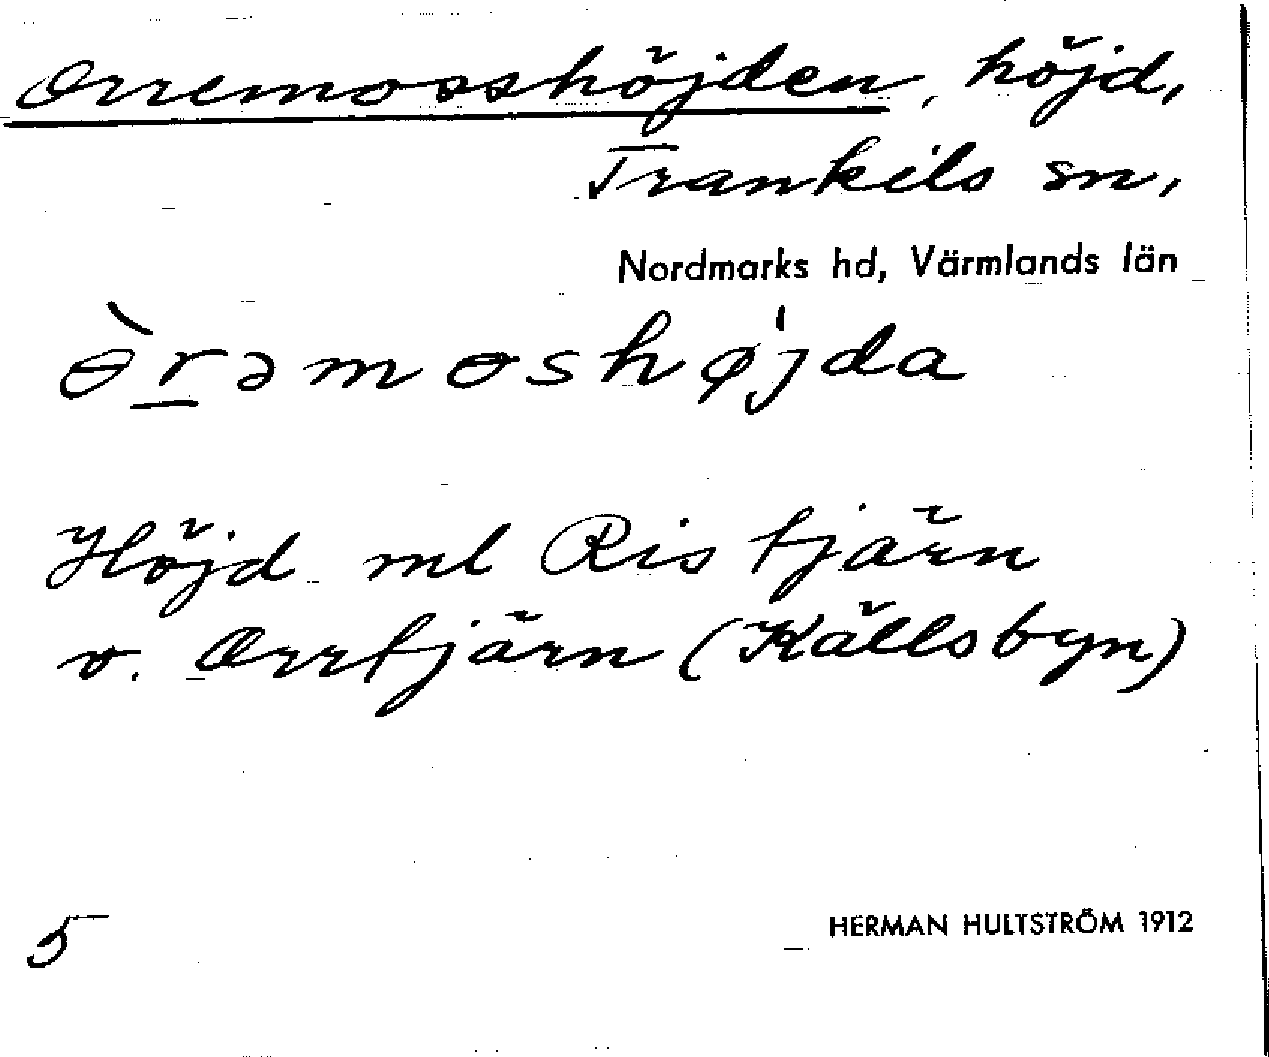 Orremosshöjden, höjd,
Trankils sn,
Nordmarks hd, Värmlands län
ɵ̀rəmɵshøjda
Höjd ml Ristjärn
o. Orrtjärn (Källsbyn)
5
HERMAN HULTSTRÖM 1912